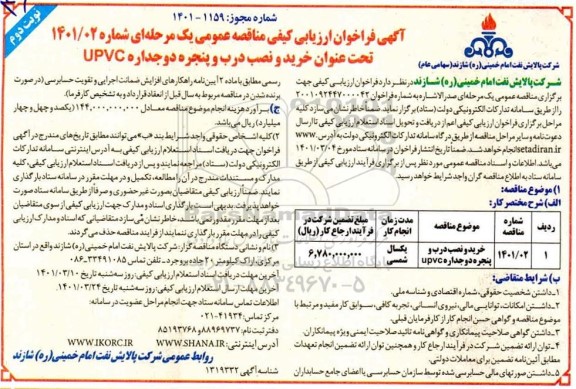 شماره مجوز: ۱۱۵۹-۱۴۰۱
نوبت دوم
آگهی فراخوان ارزیابی کیفی مناقصه عمومی یک مرحله‌ای شماره ۱۴۰۱/۰۲
تحت عنوان خرید و نصب درب و پنجره دو جداره UPVC
شرکت پالایش نفت امام خمینی (ره) شازند (سهامی عام)
شرکت پالایش نفت امام خمینی (ره) شازند در نظر دارد فراخوان ارزیابی کیفی جهت
برگزاری مناقصه عمومی یک مرحله‌ای صدرالاشاره به شماره فراخوان ۲۰۰۱۰۹۲۴۴۷۰۰۰۰۴۲
را از طریق سامانه تدارکات الکترونیکی دولت (ستاد) برگزار نماید.
مراحل برگزاری فراخوان ارزیابی کیفی اعم از دریافت و تحویل اسناد استعلام ارزیابی کیفی تا ارسال
دعوت‌نامه و سایر مراحل مناقصه از طریق درگاه سامانه تدارکات الکترونیکی دولت به آدرس www.
setadiran.ir انجام خواهد شد. ضمناً تاریخ انتشار فراخوان در سامانه ستاد مورخ ۱۴۰۱/۰۳/۰۴
می‌باشد. اطلاعات و اسناد مناقصه عمومی مورد نظر پس از برگزاری فرآیند ارزیابی کیفی از طریق
سامانه ستاد به اطلاع مناقصه گران واجد شرایط خواهد رسید.
۱) موضوع مناقصه:
الف) شرح مختصر کار:
ردیف شماره مناقصه موضوع مناقصه مدت زمان انجام کار مبلغ تضمین شرکت در فرآیند ارجاع کار (ریال)
۱ ۱۴۰۱/۰۲ خرید و نصب درب و پنجره دو جداره upvc یکسال شمسی ۶,۷۸۰,۰۰۰,۰۰۰
ب) شرایط متقاضی:
۱- داشتن شخصیت حقوقی، شماره اقتصادی و شناسه ملی.
۲- داشتن امکانات، توانایی مالی، نیروی انسانی، تجربه کافی، سوابق کار مفید و مرتبط با
موضوع مناقصه و گواهی حسن انجام کار از کارفرمایان قبلی.
۳- داشتن گواهی صلاحیت پیمانکاری و گواهی‌نامه تائید صلاحیت ایمنی ویژه پیمانکاران.
۴- توان ارائه تضمین شرکت در فرآیند ارجاع کار و همچنین توان ارائه تضمین انجام تعهدات
مطابق آئین‌نامه تضمین برای معاملات دولتی.
۵- داشتن صورتهای مالی حسابرسی شده توسط سازمان حسابرسی یا اعضای جامع حسابداران
رسمی مطابق با ماده ۲ آیین‌نامه راهکارهای افزایش ضمانت اجرایی و تقویت حسابرسی (در صورت
برنده شدن در مناقصه مربوط به سال قبل از انعقاد قرارداد و به تشخیص کارفرما).
ج) برآورد هزینه انجام موضوع مناقصه معادل ۱۴۴,۰۰۰,۰۰۰,۰۰۰ (یکصد و چهل و چهار
میلیارد) ریال می‌باشد.
۲) کلیه اشخاص حقوقی واجد شرایط بند «ب» می‌توانند مطابق تاریخ‌های مندرج در آگهی
فراخوان جهت دریافت اسناد استعلام ارزیابی کیفی به آدرس اینترنتی سامانه تدارکات
الکترونیکی دولت (ستاد) مراجعه نمایند و پس از دریافت اسناد استعلام ارزیابی کیفی، کلیه
مدارک و مستندات مندرج در آن را مطالعه، تکمیل و در مهلت مقرر در سامانه ستاد بارگذاری
نمایند. ضمناً ارزیابی کیفی متقاضیان بصورت غیر حضوری و صرفاً از طریق سامانه ستاد صورت
خواهد پذیرفت. بدیهی است بارگذاری اسناد و مدارک جهت ارزیابی کیفی از سوی متقاضیان
کیفی را در مهلت مقرر بارگذاری ننمایند از فرآیند مناقصه حذف می‌گردند.
۳) نام و نشانی دستگاه مناقصه گزار: شرکت پالایش نفت امام خمینی (ره) شازند واقع در استان
مرکزی، اراک، کیلومتر ۲۰ جاده بروجرد - تلفن تماس: ۳۳۴۹۱۰۸۵-۰۸۶
آخرین مهلت دریافت اسناد استعلام ارزیابی کیفی: روز سه‌شنبه تا تاریخ ۱۴۰۱/۰۳/۱۰
آخرین مهلت ارسال اسناد استعلام ارزیابی کیفی: روز سه‌شنبه تا تاریخ ۱۴۰۱/۰۳/۲۴
اطلاعات تماس سامانه ستاد جهت انجام مراحل عضویت در سامانه:
مرکز تماس: ۴۱۹۳۴-۰۲۱
دفتر ثبت نام: ۸۸۹۶۹۷۳۷ و ۸۵۱۹۳۷۶۸
آدرس اینترنتی: WWW.SHANA.IR WWW.IKORC.IR
شناسه آگهی ۱۳۱۹۳۳۲
روابط عمومی شرکت پالایش نفت امام خمینی (ره) شازند